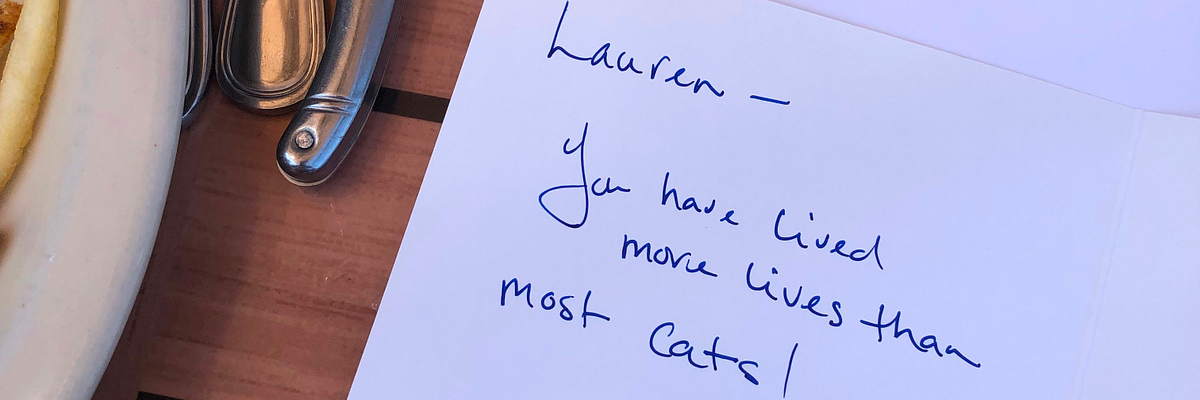 Lauren —
You have lived
more lives than
most cats!